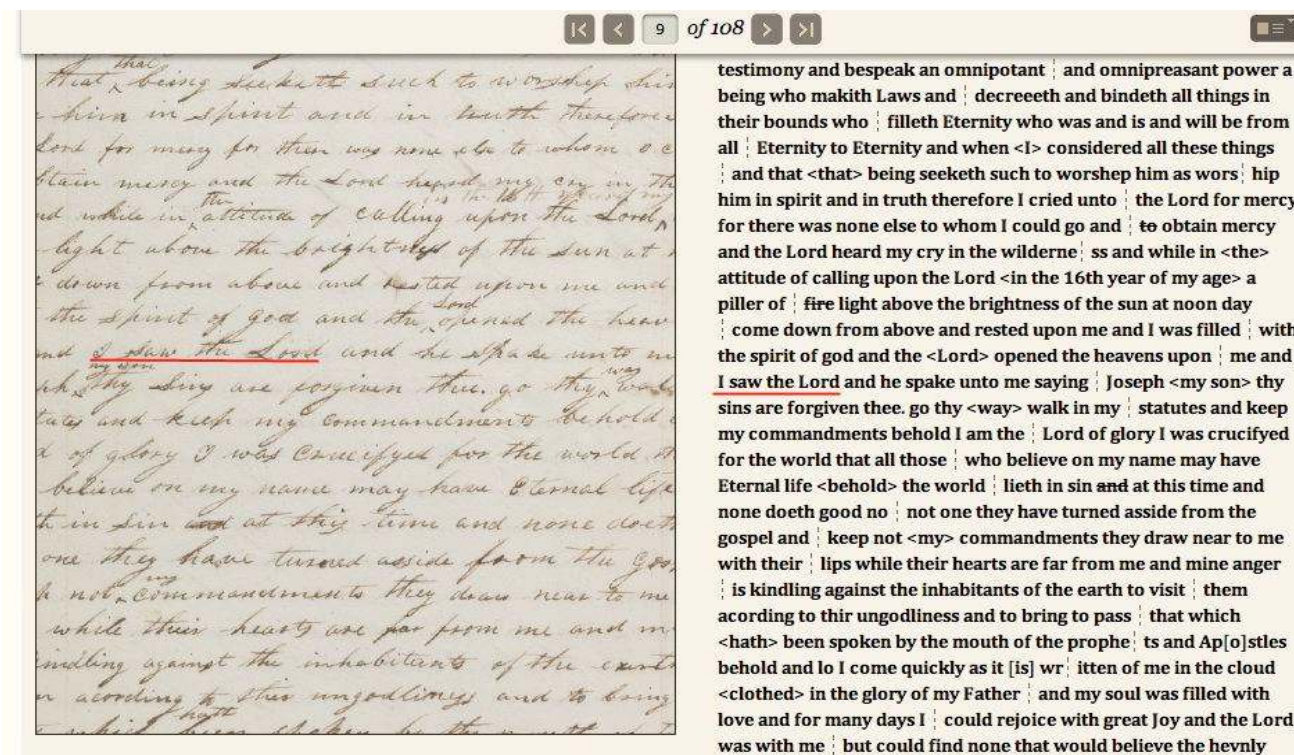 9 of 108
that
that being seeketh such to worshep him
him in spirit and in truth therefore
Lord for mercy for there was none else to whom I c
btain mercy and the Lord heard my cry in th
the in the 16th year of my
nd while in attitude of calling upon the Lord
light above the brightness of the sun at n
down from above and rested upon me and
Lord
the spirit of god and the opened the heav
nd I saw the Lord and he spake unto m
my son way
ph thy sins are forgiven thee. go thy walk
tutes and keep my commandments behold
d of glory I was crucifyed for the world th
believe on my name may have Eternal life
th in sin and at this time and none doeth
one they have turned asside from the gos
my
p not commandments they draw near to me
while their hearts are far from me and m
indling against the inhabitants of the earth
acording to thir ungodliness and to bring
hath
which been spoken by the mouth
testimony and bespeak an omnipotant ¦ and omnipreasant power a
being who makith Laws and ¦ decreeeth and bindeth all things in
their bounds who ¦ filleth Eternity who was and is and will be from
all ¦ Eternity to Eternity and when <I> considered all these things
¦ and that <that> being seeketh such to worshep him as wors¦ hip
him in spirit and in truth therefore I cried unto ¦ the Lord for mercy
for there was none else to whom I could go and ¦ to obtain mercy
and the Lord heard my cry in the wilderne¦ ss and while in <the>
attitude of calling upon the Lord <in the 16th year of my age> a
piller of ¦ fire light above the brightness of the sun at noon day
¦ come down from above and rested upon me and I was filled ¦ with
the spirit of god and the <Lord> opened the heavens upon ¦ me and
I saw the Lord and he spake unto me saying ¦ Joseph <my son> thy
sins are forgiven thee. go thy <way> walk in my ¦ statutes and keep
my commandments behold I am the ¦ Lord of glory I was crucifyed
for the world that all those ¦ who believe on my name may have
Eternal life <behold> the world ¦ lieth in sin and at this time and
none doeth good no ¦ not one they have turned asside from the
gospel and ¦ keep not <my> commandments they draw near to me
with their ¦ lips while their hearts are far from me and mine anger
¦ is kindling against the inhabitants of the earth to visit ¦ them
acording to thir ungodliness and to bring to pass ¦ that which
<hath> been spoken by the mouth of the prophe¦ ts and Ap[o]stles
behold and lo I come quickly as it [is] wr¦ itten of me in the cloud
<clothed> in the glory of my Father ¦ and my soul was filled with
love and for many days I ¦ could rejoice with great Joy and the Lord
was with me ¦ but could find none that would believe the hevnly